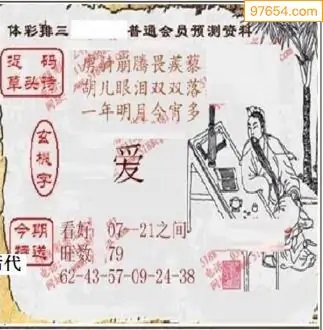 97654.com
体彩排三 普通会员预测资料
捉码
草头诗
崩腾畏蒺藜
胡儿眼泪双双落
一年明月今宵多
玄机字
爱
今期
看好 07-21之间
旺数 79
62-43-57-09-24-38
代